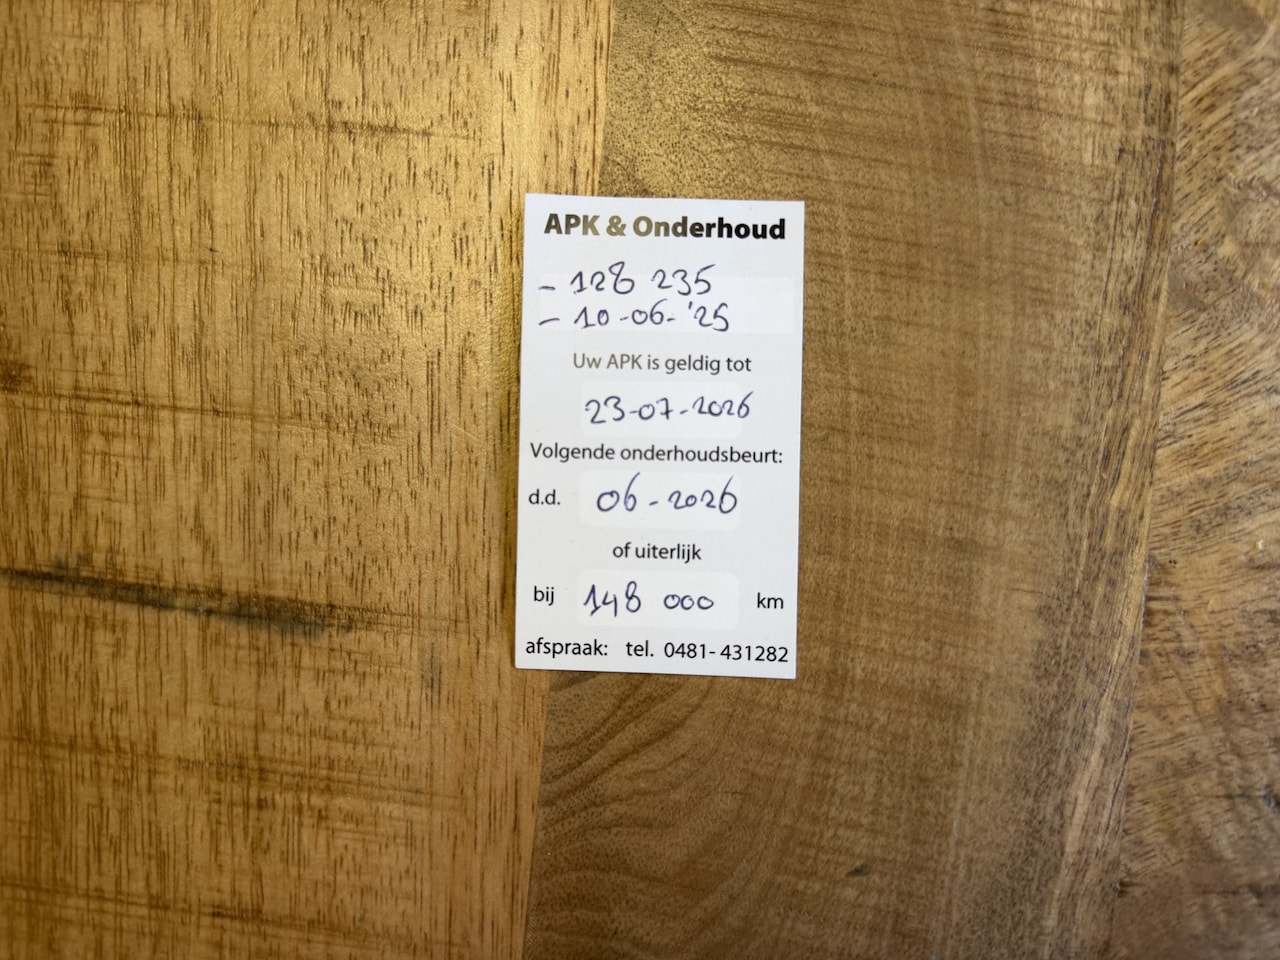 APK & Onderhoud
- 128 235
- 10-06-'25
Uw APK is geldig tot
23-07-2026
Volgende onderhoudsbeurt:
d.d. 06-2026
of uiterlijk
bij 148 000 km
afspraak: tel. 0481-431282